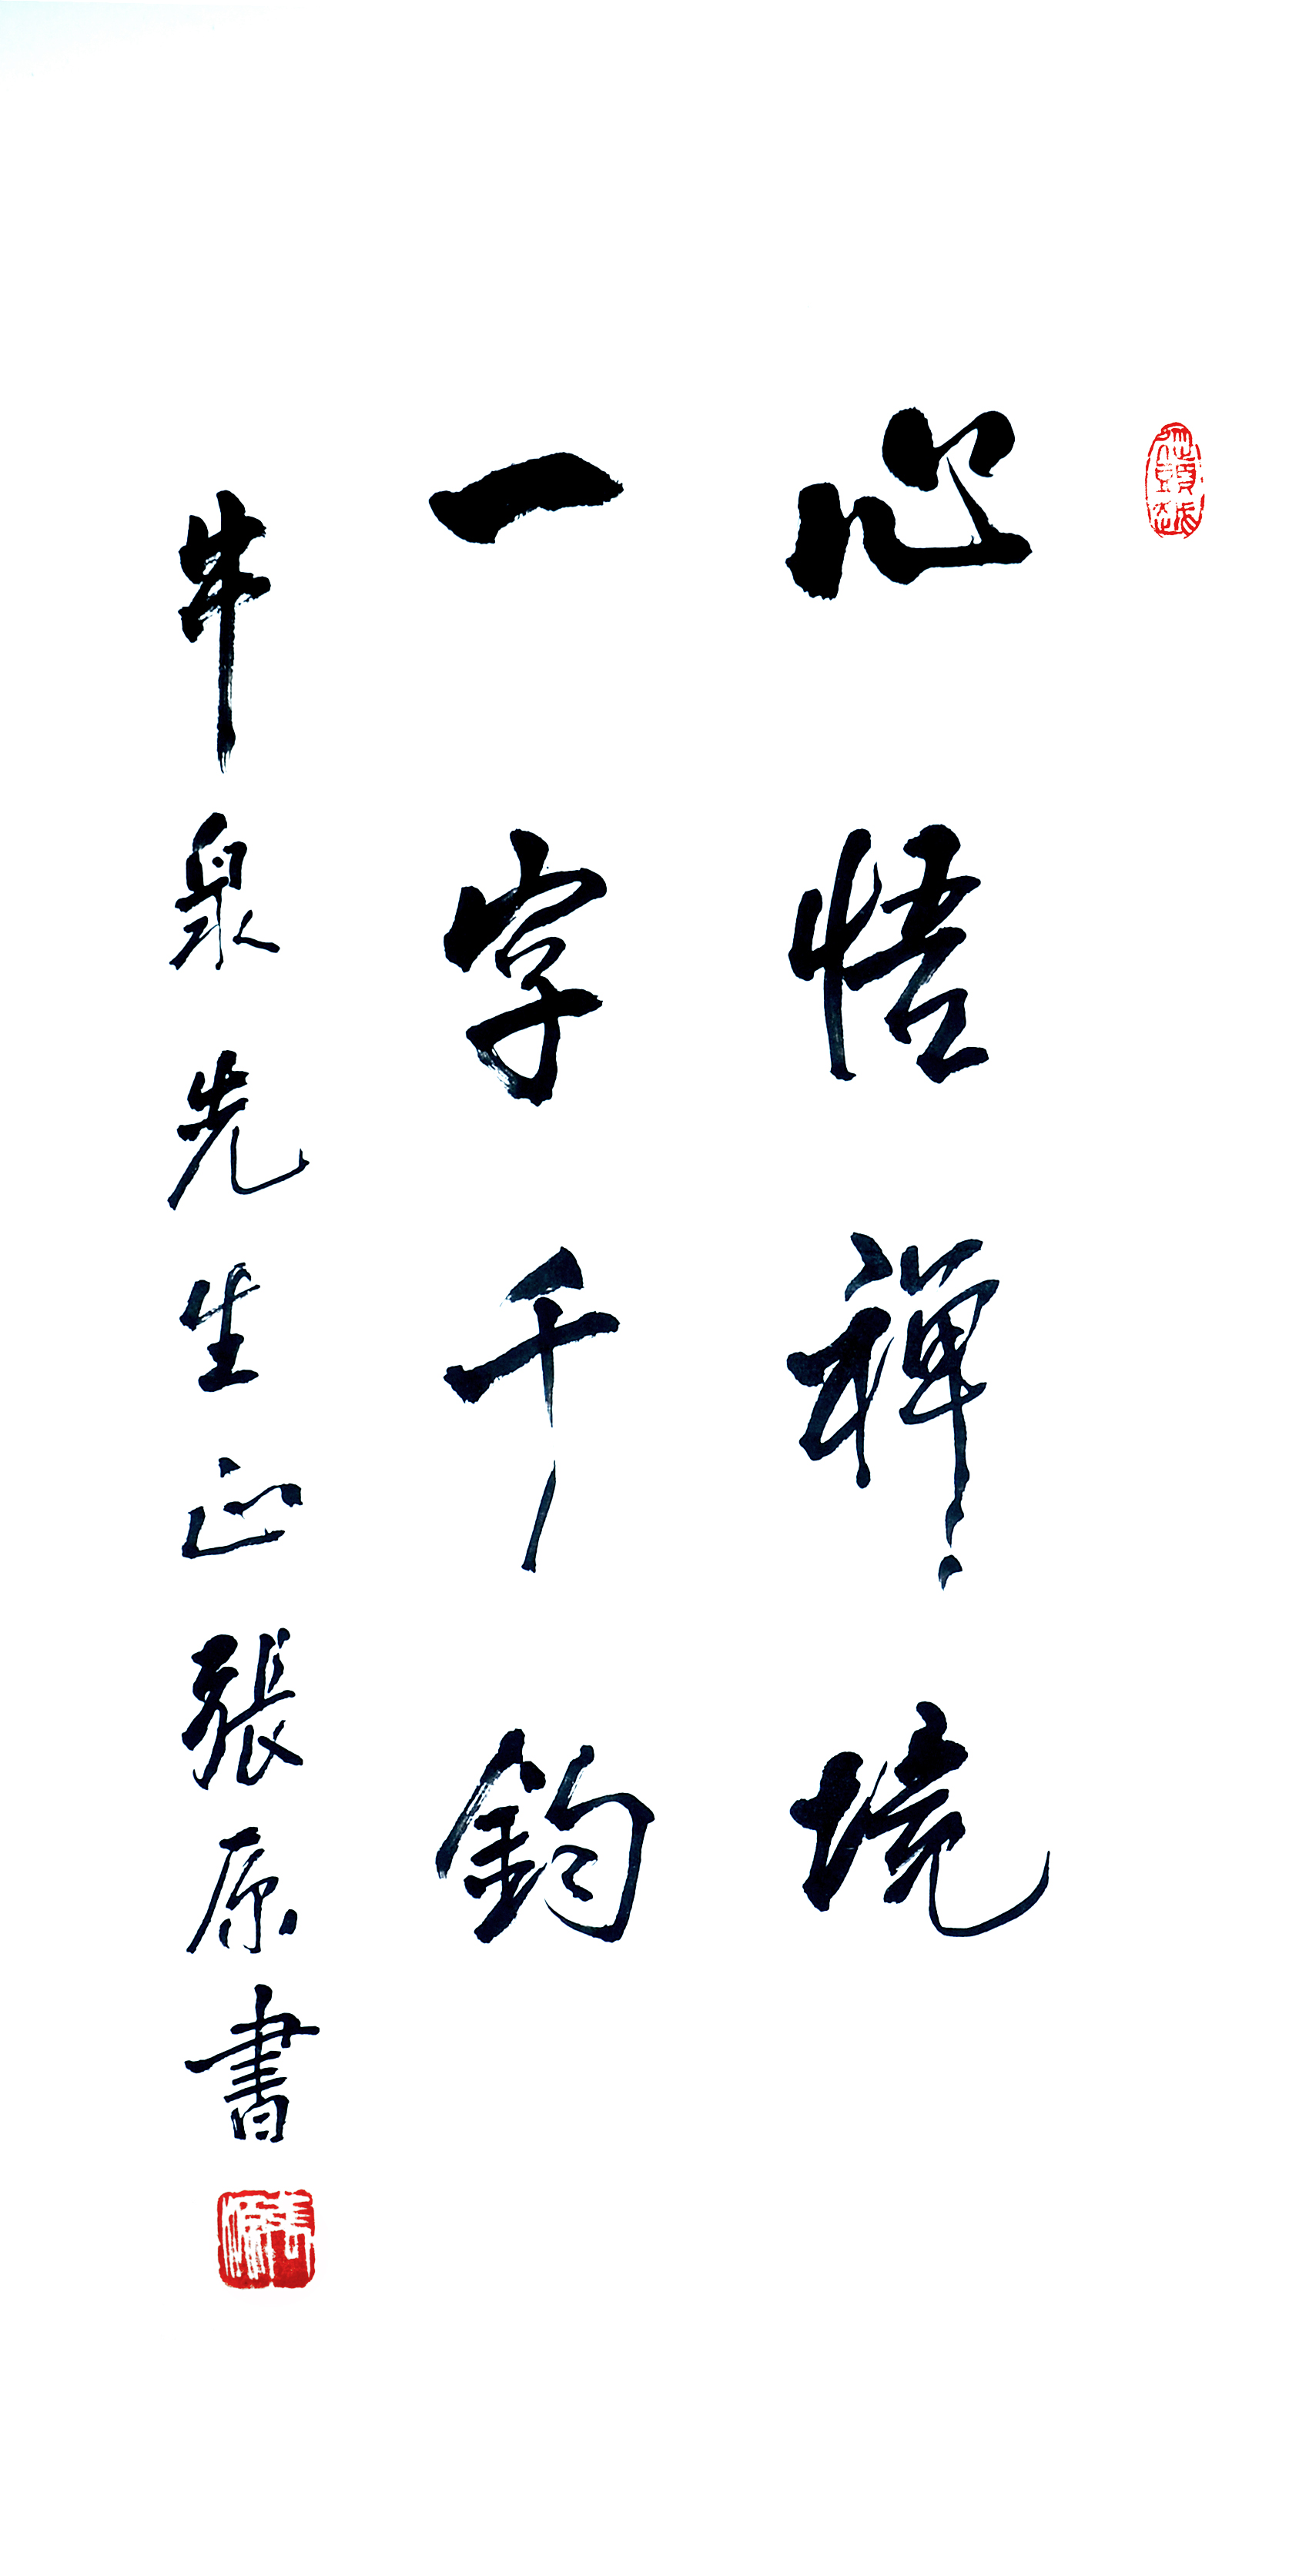 心悟禅境
一字千鈞
牛泉先生正張原書